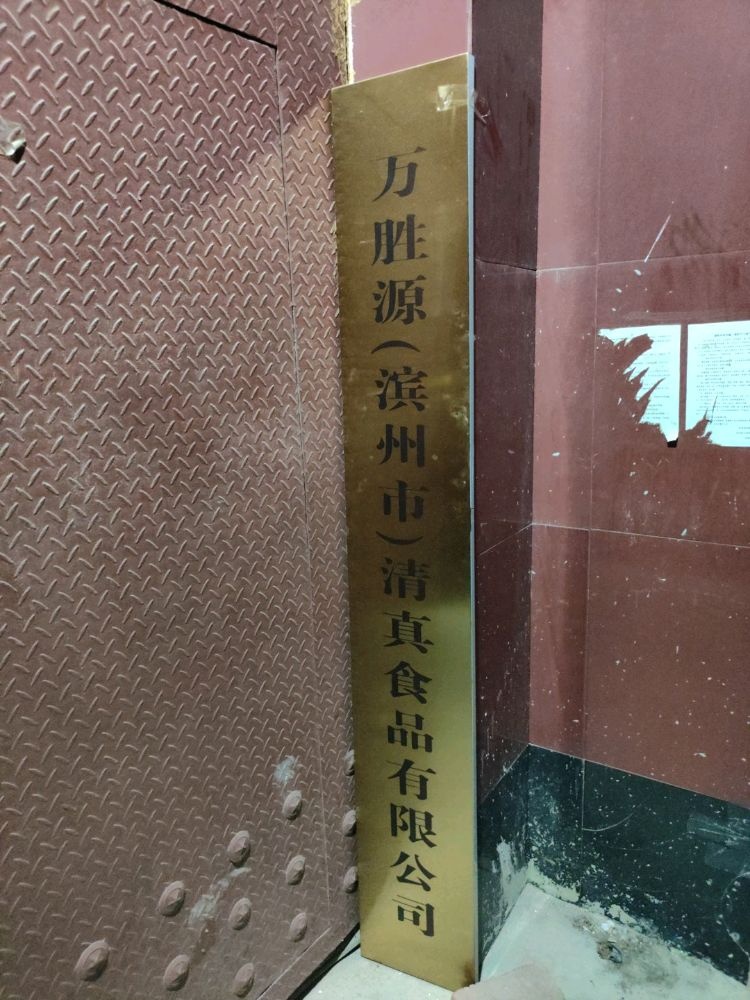 万胜源(滨州市)清真食品有限公司